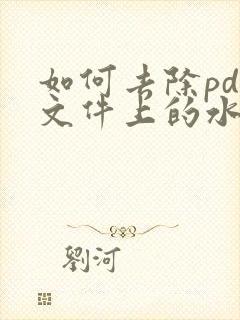 如何去除pd
文件上的水
劉河